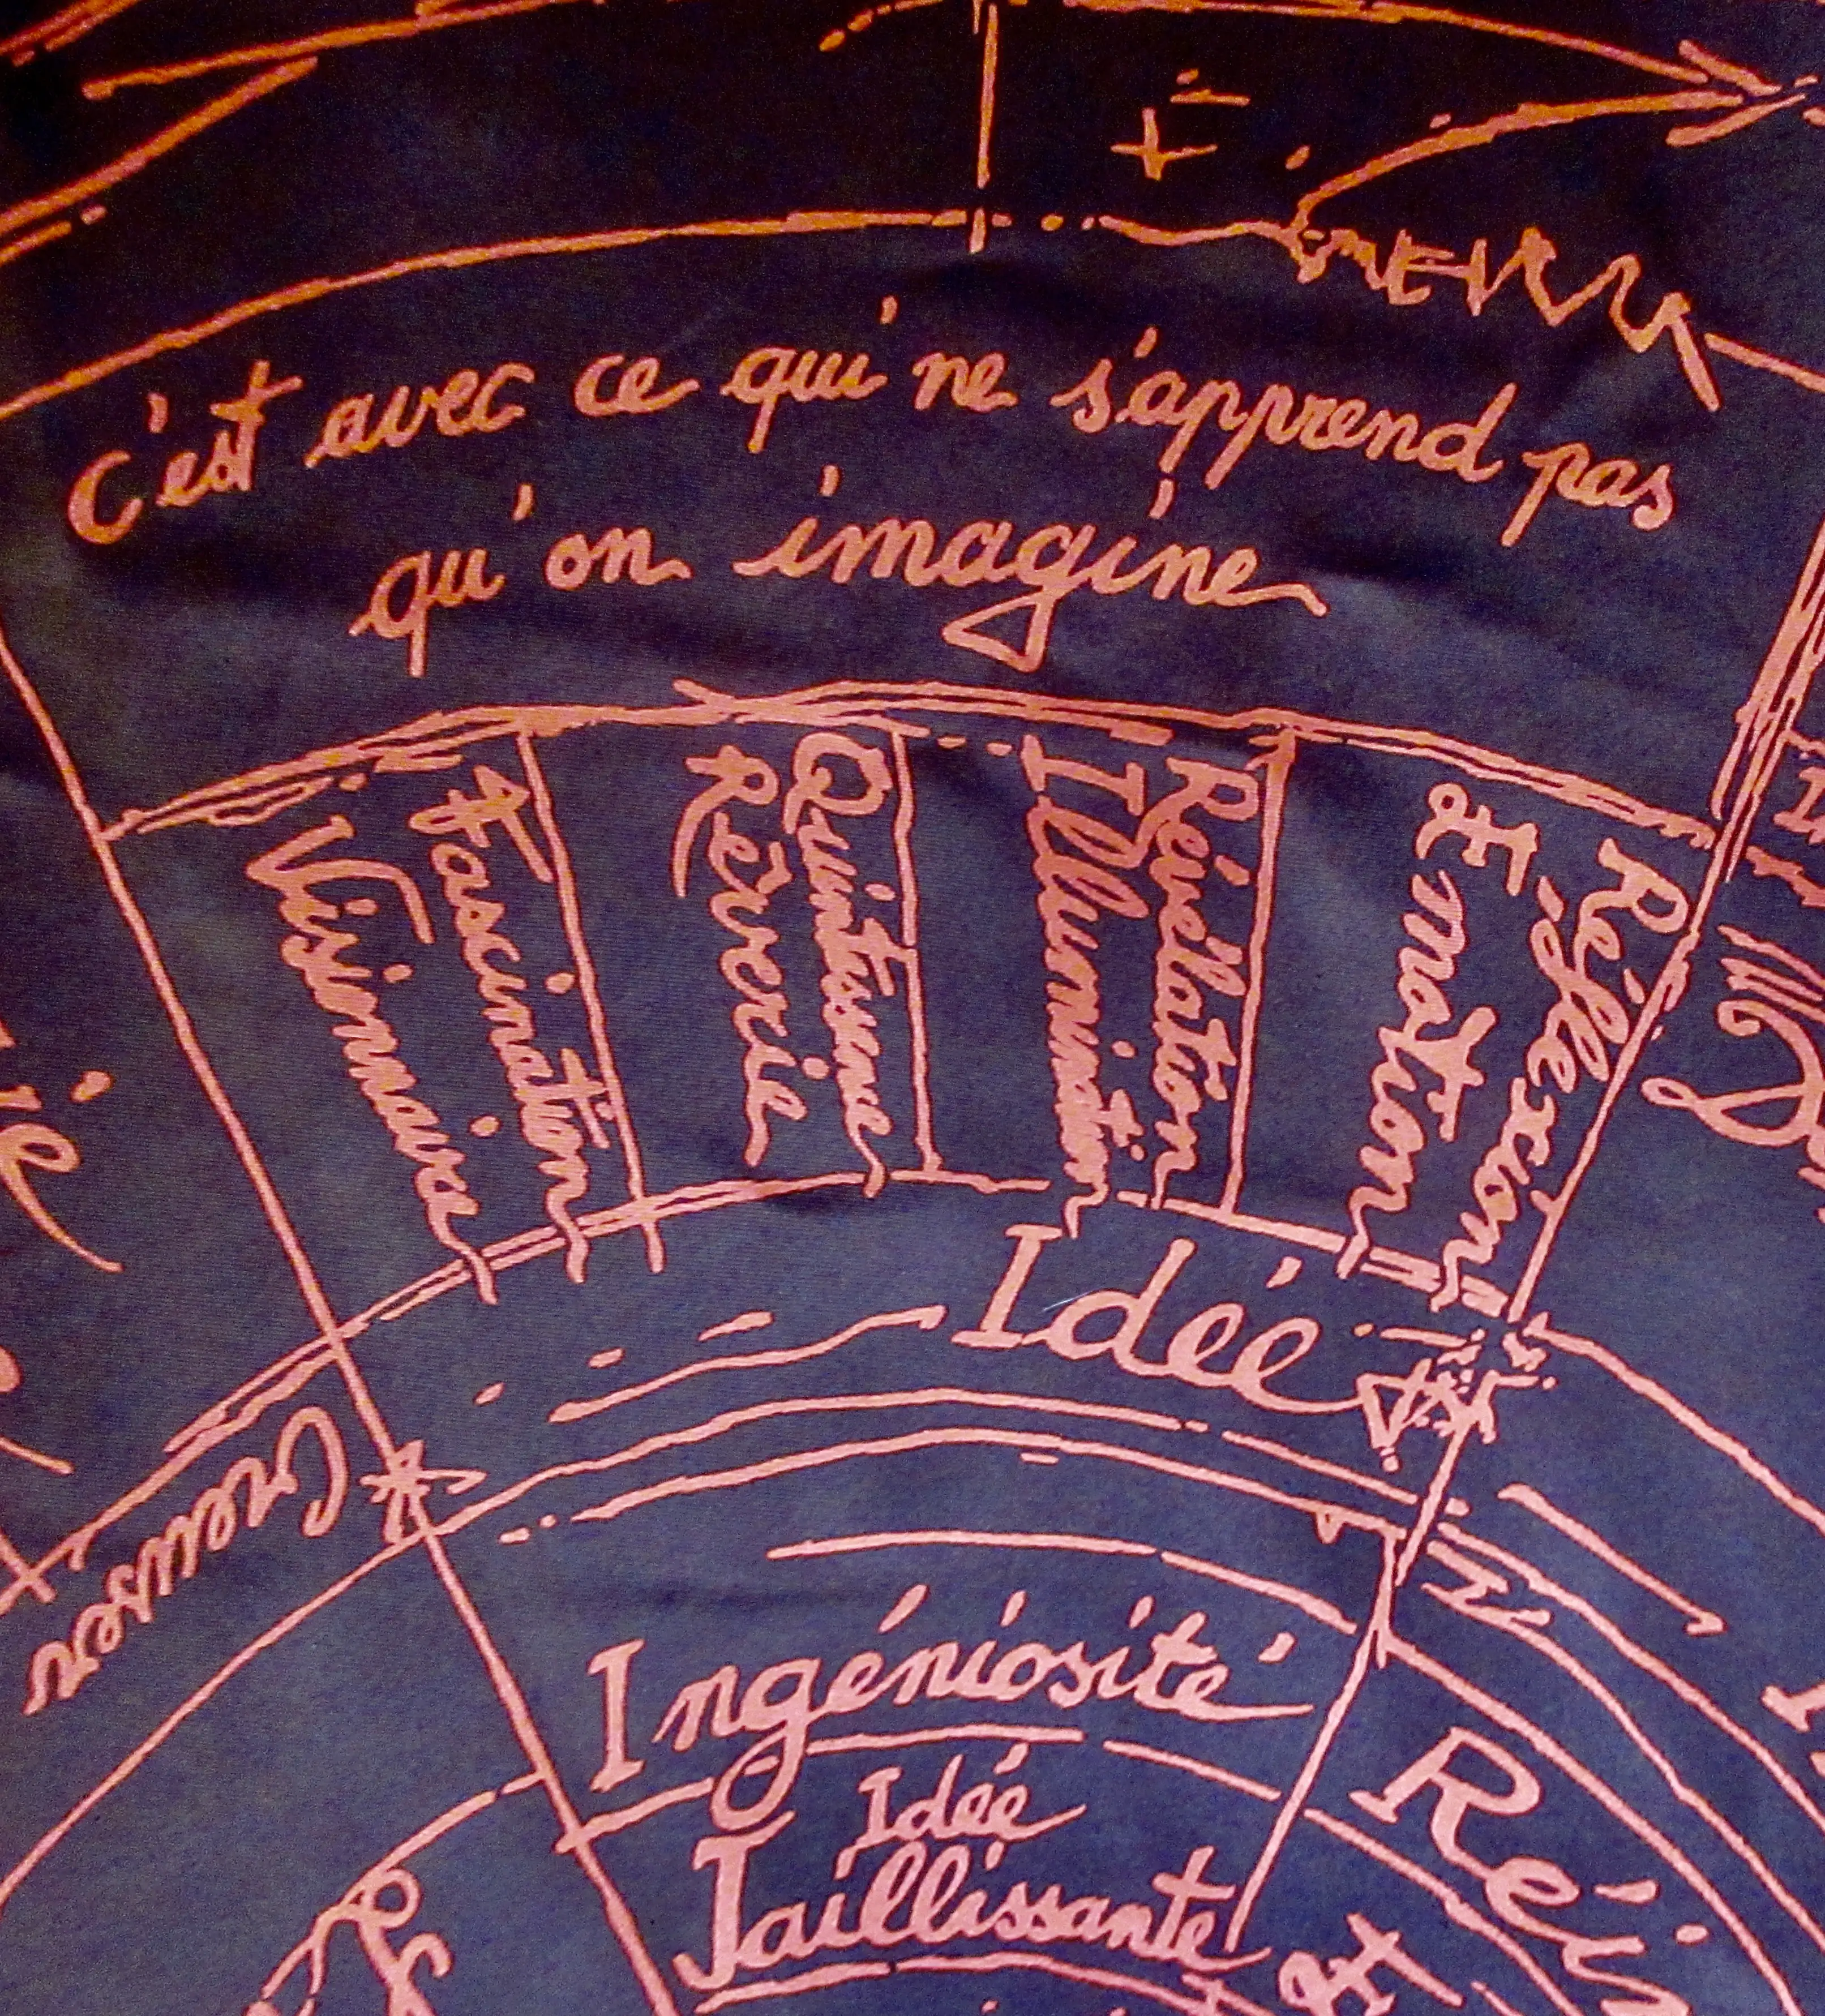 c'est avec ce qui ne s'apprend pas
qu'on imagine
Visionnaire
Fascination
Rêverie
Quintessence
Illumination
Révélation
& Émotion
Réflexion
Idée
Creuser
Ingéniosité
Idée
Jaillissante